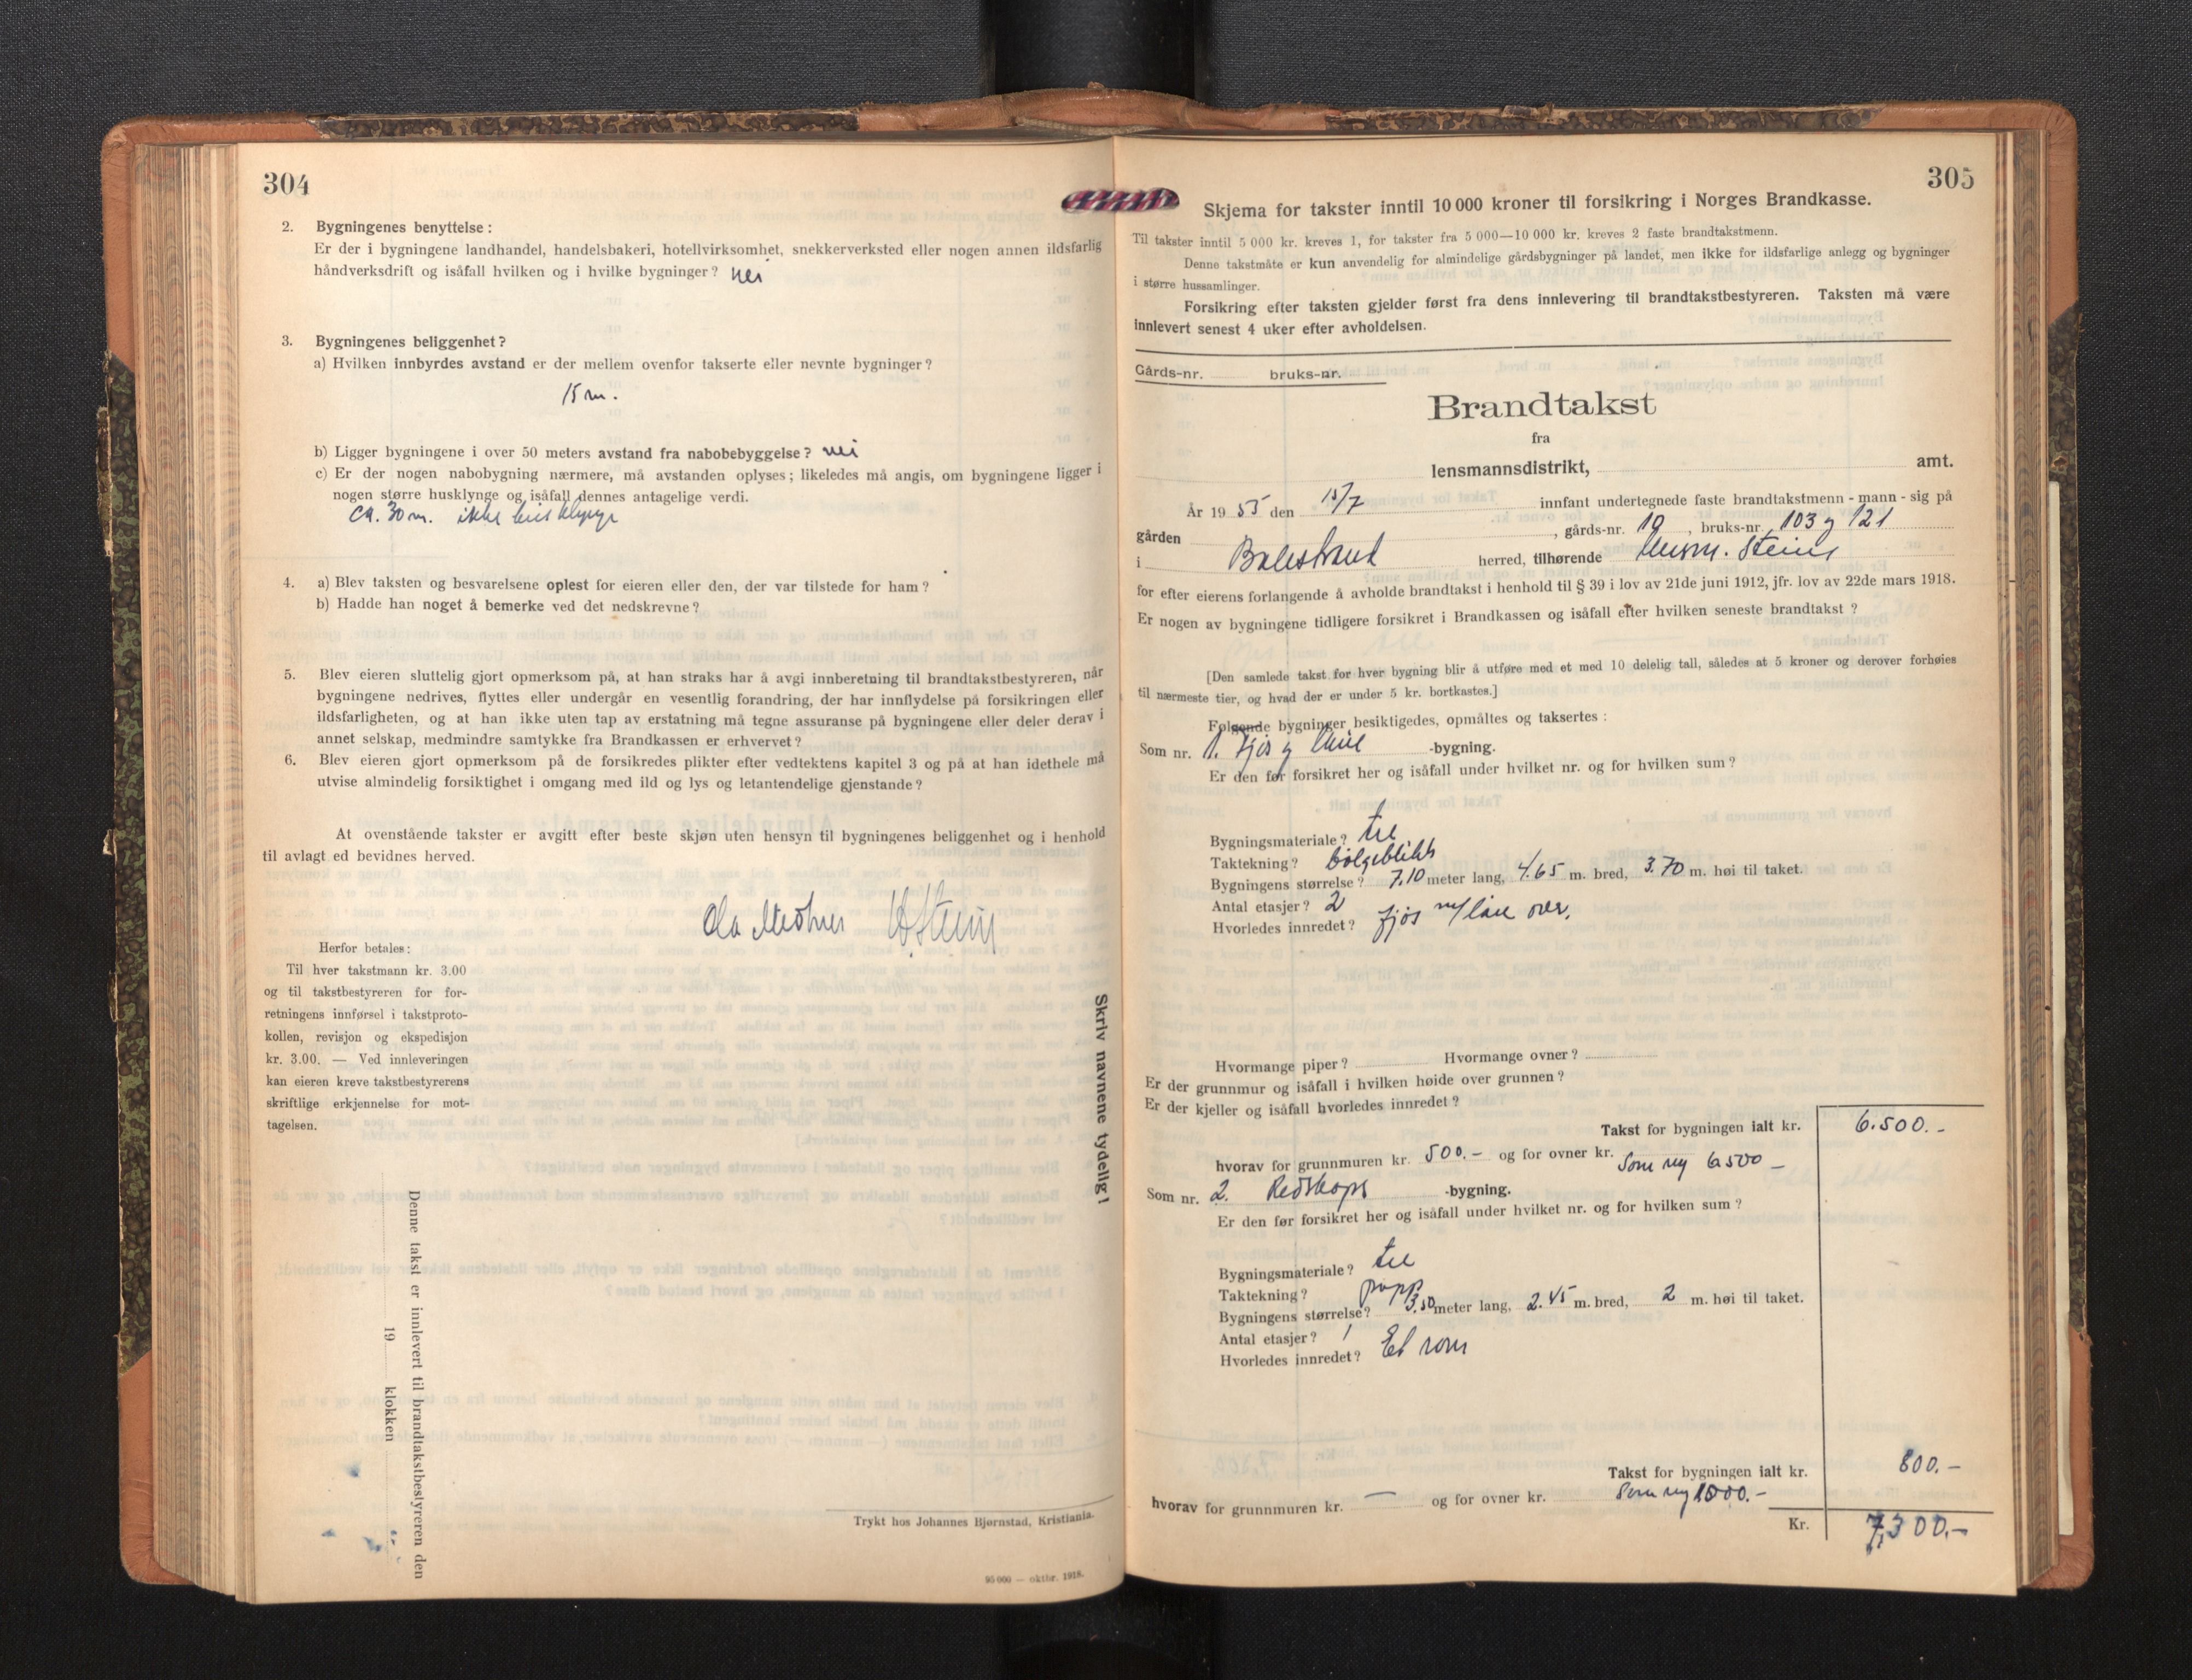 304
2. Bygningenes benyttelse:
Er der i bygningene landhandel, handelsbakeri, hotellvirksomhet, snekkerverksted eller nogen annen ildsfarlig
håndverksdrift og isåfall hvilken og i hvilke bygninger? nei
3. Bygningenes beliggenhet?
a) Hvilken innbyrdes avstand er der mellem ovenfor takserte eller nevnte bygninger?
15 m.
b) Ligger bygningene i over 50 meters avstand fra nabobebyggelse? nei
c) Er der nogen nabobygning nærmere, må avstanden oplyses; likeledes må angis, om bygningene ligger i
nogen større husklynge og isåfall dennes antagelige verdi.
ca. 30 m. ikke
4. a) Blev taksten og besvarelsene oplest for eieren eller den, der var tilstede for ham?
b) Hadde han noget å bemerke ved det nedskrevne?
5. Blev eieren sluttelig gjort opmerksom på, at han straks har å avgi innberetning til brandtakstbestyreren, når
bygningene nedrives, flyttes eller undergår en vesentlig forandring, der har innflydelse på forsikringen eller
ildsfarligheten, og at han ikke uten tap av erstatning må tegne assuranse på bygningene eller deler derav i
annet selskap, medmindre samtykke fra Brandkassen er erhvervet?
6. Blev eieren gjort opmerksom på de forsikredes plikter efter vedtektens kapitel 3 og på at han idethele må
utvise almindelig forsiktighet i omgang med ild og lys og letantendelige gjenstande?
At ovenstående takster er avgitt efter beste skjøn uten hensyn til bygningenes beliggenhet og i henhold
til avlagt ed bevidnes herved.
Herfor betales:
Til hver takstmann kr. 3.00
og til takstbestyreren for for-
retningens innførsel i takstproto-
kollen, revisjon og ekspedisjon
kr. 3.00. — Ved innleveringen
kan eieren kreve takstbestyrerens
skriftlige erkjennelse for mot-
tagelsen.
Skriv navnene tydelig!
Denne takst er innlevert til brandtakstbestyreren den
19 klokken
Trykt hos Johannes Bjørnstad, Kristiania.
95 000 — oktbr. 1918.
305
Skjema for takster inntil 10 000 kroner til forsikring i Norges Brandkasse.
Til takster inntil 5 000 kr. kreves 1, for takster fra 5 000—10 000 kr. kreves 2 faste brandtakstmenn.
Denne takstmåte er kun anvendelig for almindelige gårdsbygninger på landet, men ikke for ildsfarlige anlegg og bygninger
i større hussamlinger.
Forsikring efter taksten gjelder først fra dens innlevering til brandtakstbestyreren. Taksten må være
innlevert senest 4 uker efter avholdelsen.
Gårds-nr. bruks-nr.
Brandtakst
fra
lensmannsdistrikt, amt.
År 19 53 den 15/7 innfant undertegnede faste brandtakstmenn - mann - sig på
gården , gårds-nr. 10, bruks-nr. 103 og 121
i Balestrand herred, tilhørende Steins
for efter eierens forlangende å avholde brandtakst i henhold til § 39 i lov av 21de juni 1912, jfr. lov av 22de mars 1918.
Er nogen av bygningene tidligere forsikret i Brandkassen og isåfall efter hvilken seneste brandtakst?
[Den samlede takst for hver bygning blir å utføre med et med 10 delelig tall, således at 5 kroner og derover forhøies
til nærmeste tier, og hvad der er under 5 kr. bortkastes.]
Følgende bygninger besiktigedes, opmåltes og taksertes:
Som nr. 1. Fjøs og løe -bygning.
Er den før forsikret her og isåfall under hvilket nr. og for hvilken sum?
Bygningsmateriale? tre
Taktekning? bølgeblikk
Bygningens størrelse? 7,10 meter lang, 4.65 m. bred, 3.70 m. høi til taket.
Antal etasjer? 2
Hvorledes innredet? fjøs m/løe over.
Hvormange piper? Hvormange ovner?
Er der grunnmur og isåfall i hvilken høide over grunnen?
Er der kjeller og isåfall hvorledes innredet?
Takst for bygningen ialt kr. 6.500.-
hvorav for grunnmuren kr. 500.- og for ovner kr. Som ny 6500 -
Som nr. 2. Redskaps -bygning.
Er den før forsikret her og isåfall under hvilket nr. og for hvilken sum?
Bygningsmateriale? tre
Taktekning? papp
Bygningens størrelse? 3.50 meter lang, 2.45 m. bred, 2 m. høi til taket.
Antal etasjer? 1
Hvorledes innredet? Et rom
Takst for bygningen ialt kr. 800.-
hvorav for grunnmuren kr. — og for ovner kr. Som ny 1000.-
Kr. 7,300.-